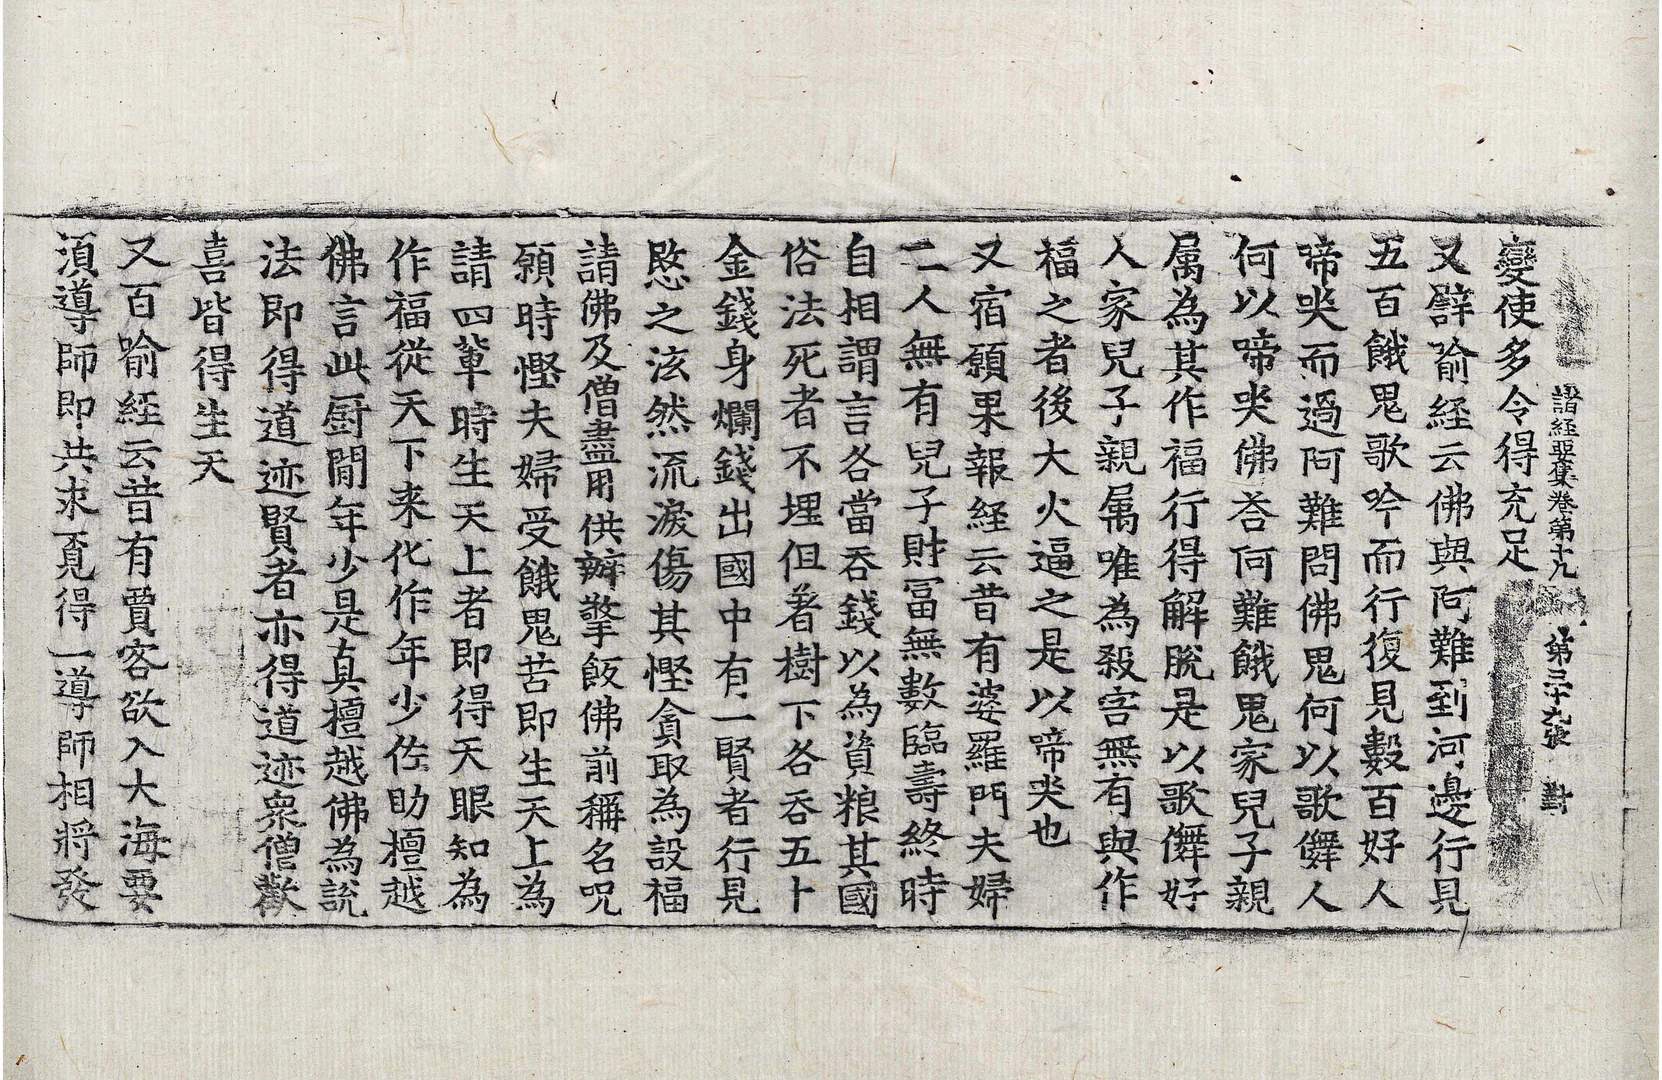 諸經要集卷第十九 第三十九張 對
變使多令得充足
又譬喻經云佛與阿難到河邊行見
五百餓鬼歌吟而行復見數百好人
啼哭而過阿難問佛鬼何以歌儛人
何以啼哭佛荅阿難餓鬼家兒子親
属為其作福行得解脫是以歌儛好
人家兒子親属唯為殺害無有與作
福之者後大火逼之是以啼哭也
又宿願果報經云昔有婆羅門夫婦
二人無有兒子財冨無數臨壽終時
自相謂言各當吞錢以為資粮其國
俗法死者不埋但著樹下各吞五十
金錢身爛錢出國中有一賢者行見
愍之泫然流淚傷其慳貪取為設福
請佛及僧盡用供辦擎飯佛前稱名呪
願時慳夫婦受餓鬼苦即生天上為
請四軰時生天上者即得天眼知為
作福從天下来化作年少佐助檀越
佛言此厨閒年少是真檀越佛為說
法即得道迹賢者亦得道迹衆僧歡
喜皆得生天
又百喻經云昔有賈客欲入大海要
湏導師即共求覓得一導師相將發